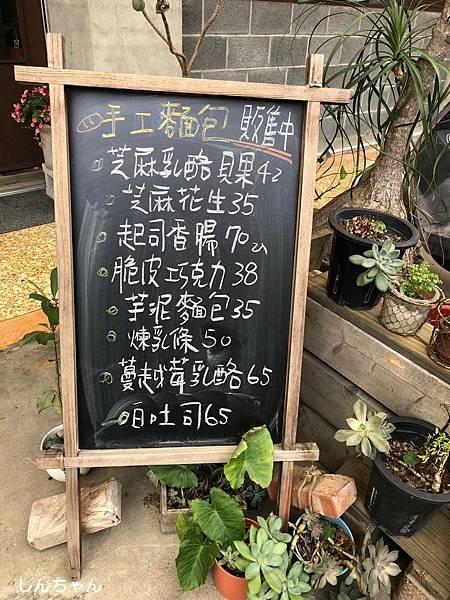 手工麵包 販售中
芝麻乳酪貝果42
芝麻花生35
起司香腸70
脆皮巧克力38
芋泥麵包35
煉乳條50
蔓越莓乳酪65
吐司65
しんちゃん